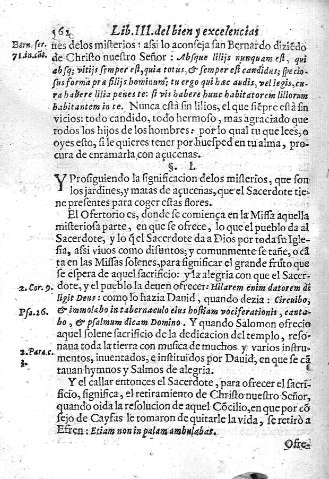 562 Lib. III. del bien y excelencias
Barn. ser. nes de los misterios: assi lo aconseja san Bernardo diziẽdo
71. in Cãt. de Christo nuestro Señor: Absque lilijs nunquam est, qui
absq; vitijs semper est, quia totus, & semper est candidus; specio-
sus forma pra filijs hominum; tu ergo qui hac audis, vel legis, cura
habere lilia penes te: si vis habere hunc habitatorem liliorum
habitantem in te. Nunca està sin lilios, el que siẽpre està sin
vicios: todo candido, todo hermoso, mas agraciado que
todos los hijos de los hombres: por lo qual tu que lees, o
oyes esto, si le quieres tener por huesped en tu alma, pro-
cura de enramarla con açucenas.
§. I.
Y Prosiguiendo la significacion de los misterios, que son
los jardines, y matas de açucenas, que el Sacerdote tie-
ne presentes para coger estas flores.
El Ofertorio es, donde se comiença en la Missa aquella
misteriosa parte, en que se ofrece, lo que el pueblo da al
Sacerdote, y lo q̃ el Sacerdote da a Dios por toda su Igle-
sia, assi viuos como difuntos; y comunmente se tañe, o cã
ta en las Missas solenes, para significar el grande fruto que
se espera de aquel sacrificio: y la alegria con que el Sacer-
2. Cor. 9. dote, y el pueblo la deuen ofrecer: Hilarem enim datorem di
ligit Deus: como lo hazia Dauid, quando dezia: Circuibo,
Psa. 26. & immolabo in tabernaculo eius hostiam vociferationis, canta-
bo, & psalmum dicam Domino. Y quando Salomon ofrecio
aquel solene sacrificio de la dedicacion del templo, reso-
2. Para. c. naua toda la tierra con musica de muchos y varios instru-
mentos, inuentados, e instituidos por Dauid, en que se cã
tauan hymnos y Salmos de alegria.
Y el callar entonces el Sacerdote, para ofrecer el sacri-
ficio, significa, el retiramiento de Christo nuestro Señor,
quando oida la resolucion de aquel Cõcilio, en que por cõ
sejo de Cayfas le tomaron de quitarle la vida, se retirò a
Efren: Etiam non in palam ambulabat.
Ofre-